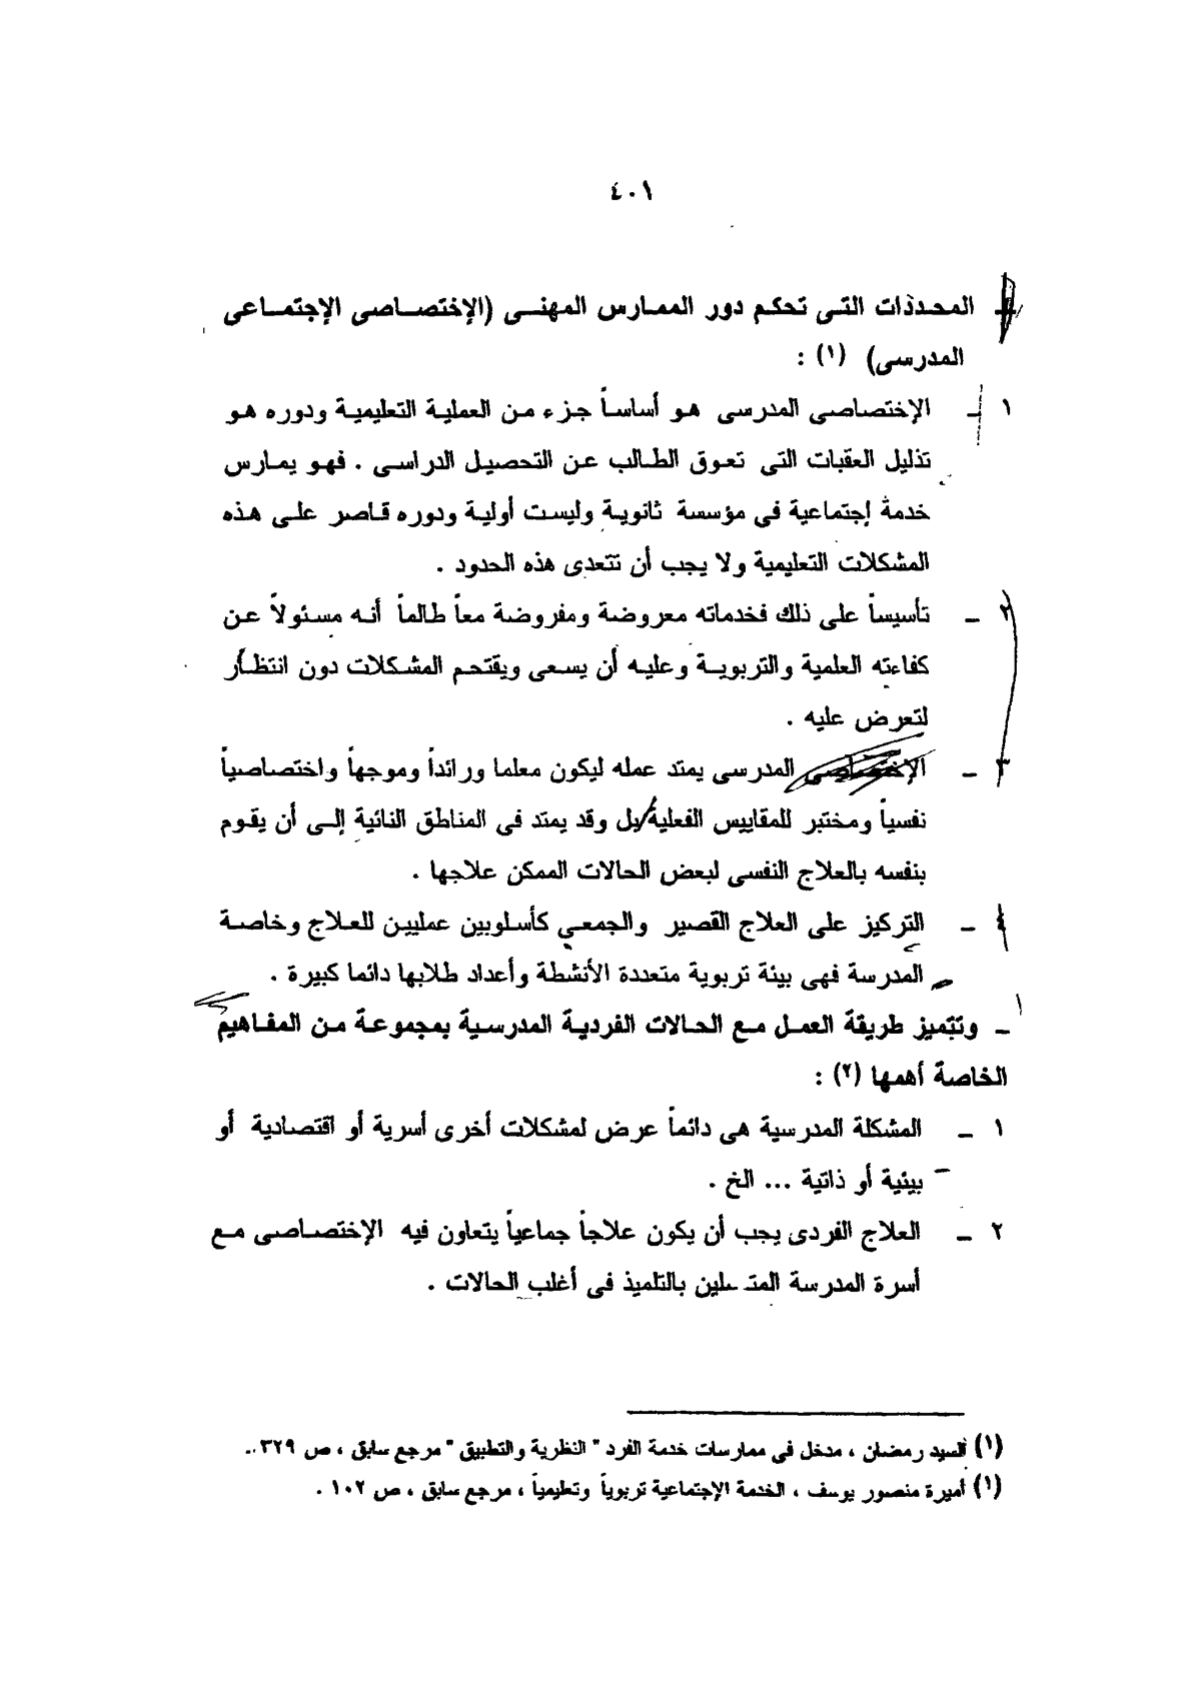 ٤٠١
ـ المحددات التى تحكم دور الممارس المهنى (الإختصاصى الإجتماعى
المدرسى) (١) :
١ ـ الإختصاصى المدرسى هو أساساً جزء من العملية التعليمية ودوره هو
تذليل العقبات التى تعوق الطالب عن التحصيل الدراسى . فهو يمارس
خدمة إجتماعية فى مؤسسة ثانوية وليست أولية ودوره قاصر على هذه
المشكلات التعليمية ولا يجب أن تتعدى هذه الحدود .
٢ ـ تأسيساً على ذلك فخدماته معروضة ومفروضة معاً طالماً أنه مسئولاً عن
كفاءته العلمية والتربوية وعليه أن يسعى ويقتحم المشكلات دون انتظار
لتعرض عليه .
٣ ـ الإختصاصى المدرسى يمتد عمله ليكون معلما ورائداً وموجهاً واختصاصياً
نفسياً ومختبر للمقاييس الفعلية/بل وقد يمتد فى المناطق النائية إلى أن يقوم
بنفسه بالعلاج النفسى لبعض الحالات الممكن علاجها .
٤ ـ التركيز على العلاج القصير والجمعي كأسلوبين عمليين للعلاج وخاصة
المدرسة فهى بيئة تربوية متعددة الأنشطة وأعداد طلابها دائما كبيرة .
ـ وتتميز طريقة العمل مع الحالات الفردية المدرسية بمجموعة من المفاهيم
الخاصة أهمها (٢) :
١ ـ المشكلة المدرسية هى دائماً عرض لمشكلات أخرى أسرية أو اقتصادية أو
بيئية أو ذاتية ... الخ .
٢ ـ العلاج الفردى يجب أن يكون علاجاً جماعياً يتعاون فيه الإختصاصى مع
أسرة المدرسة المتصلين بالتلميذ فى أغلب الحالات .
(١) السيد رمضان ، مدخل فى ممارسات خدمة الفرد " النظرية والتطبيق " مرجع سابق ، ص ٣٢٩ .
(١) أميرة منصور يوسف ، الخدمة الإجتماعية تربوياً وتعليمياً ، مرجع سابق ، ص ١٠٢ .